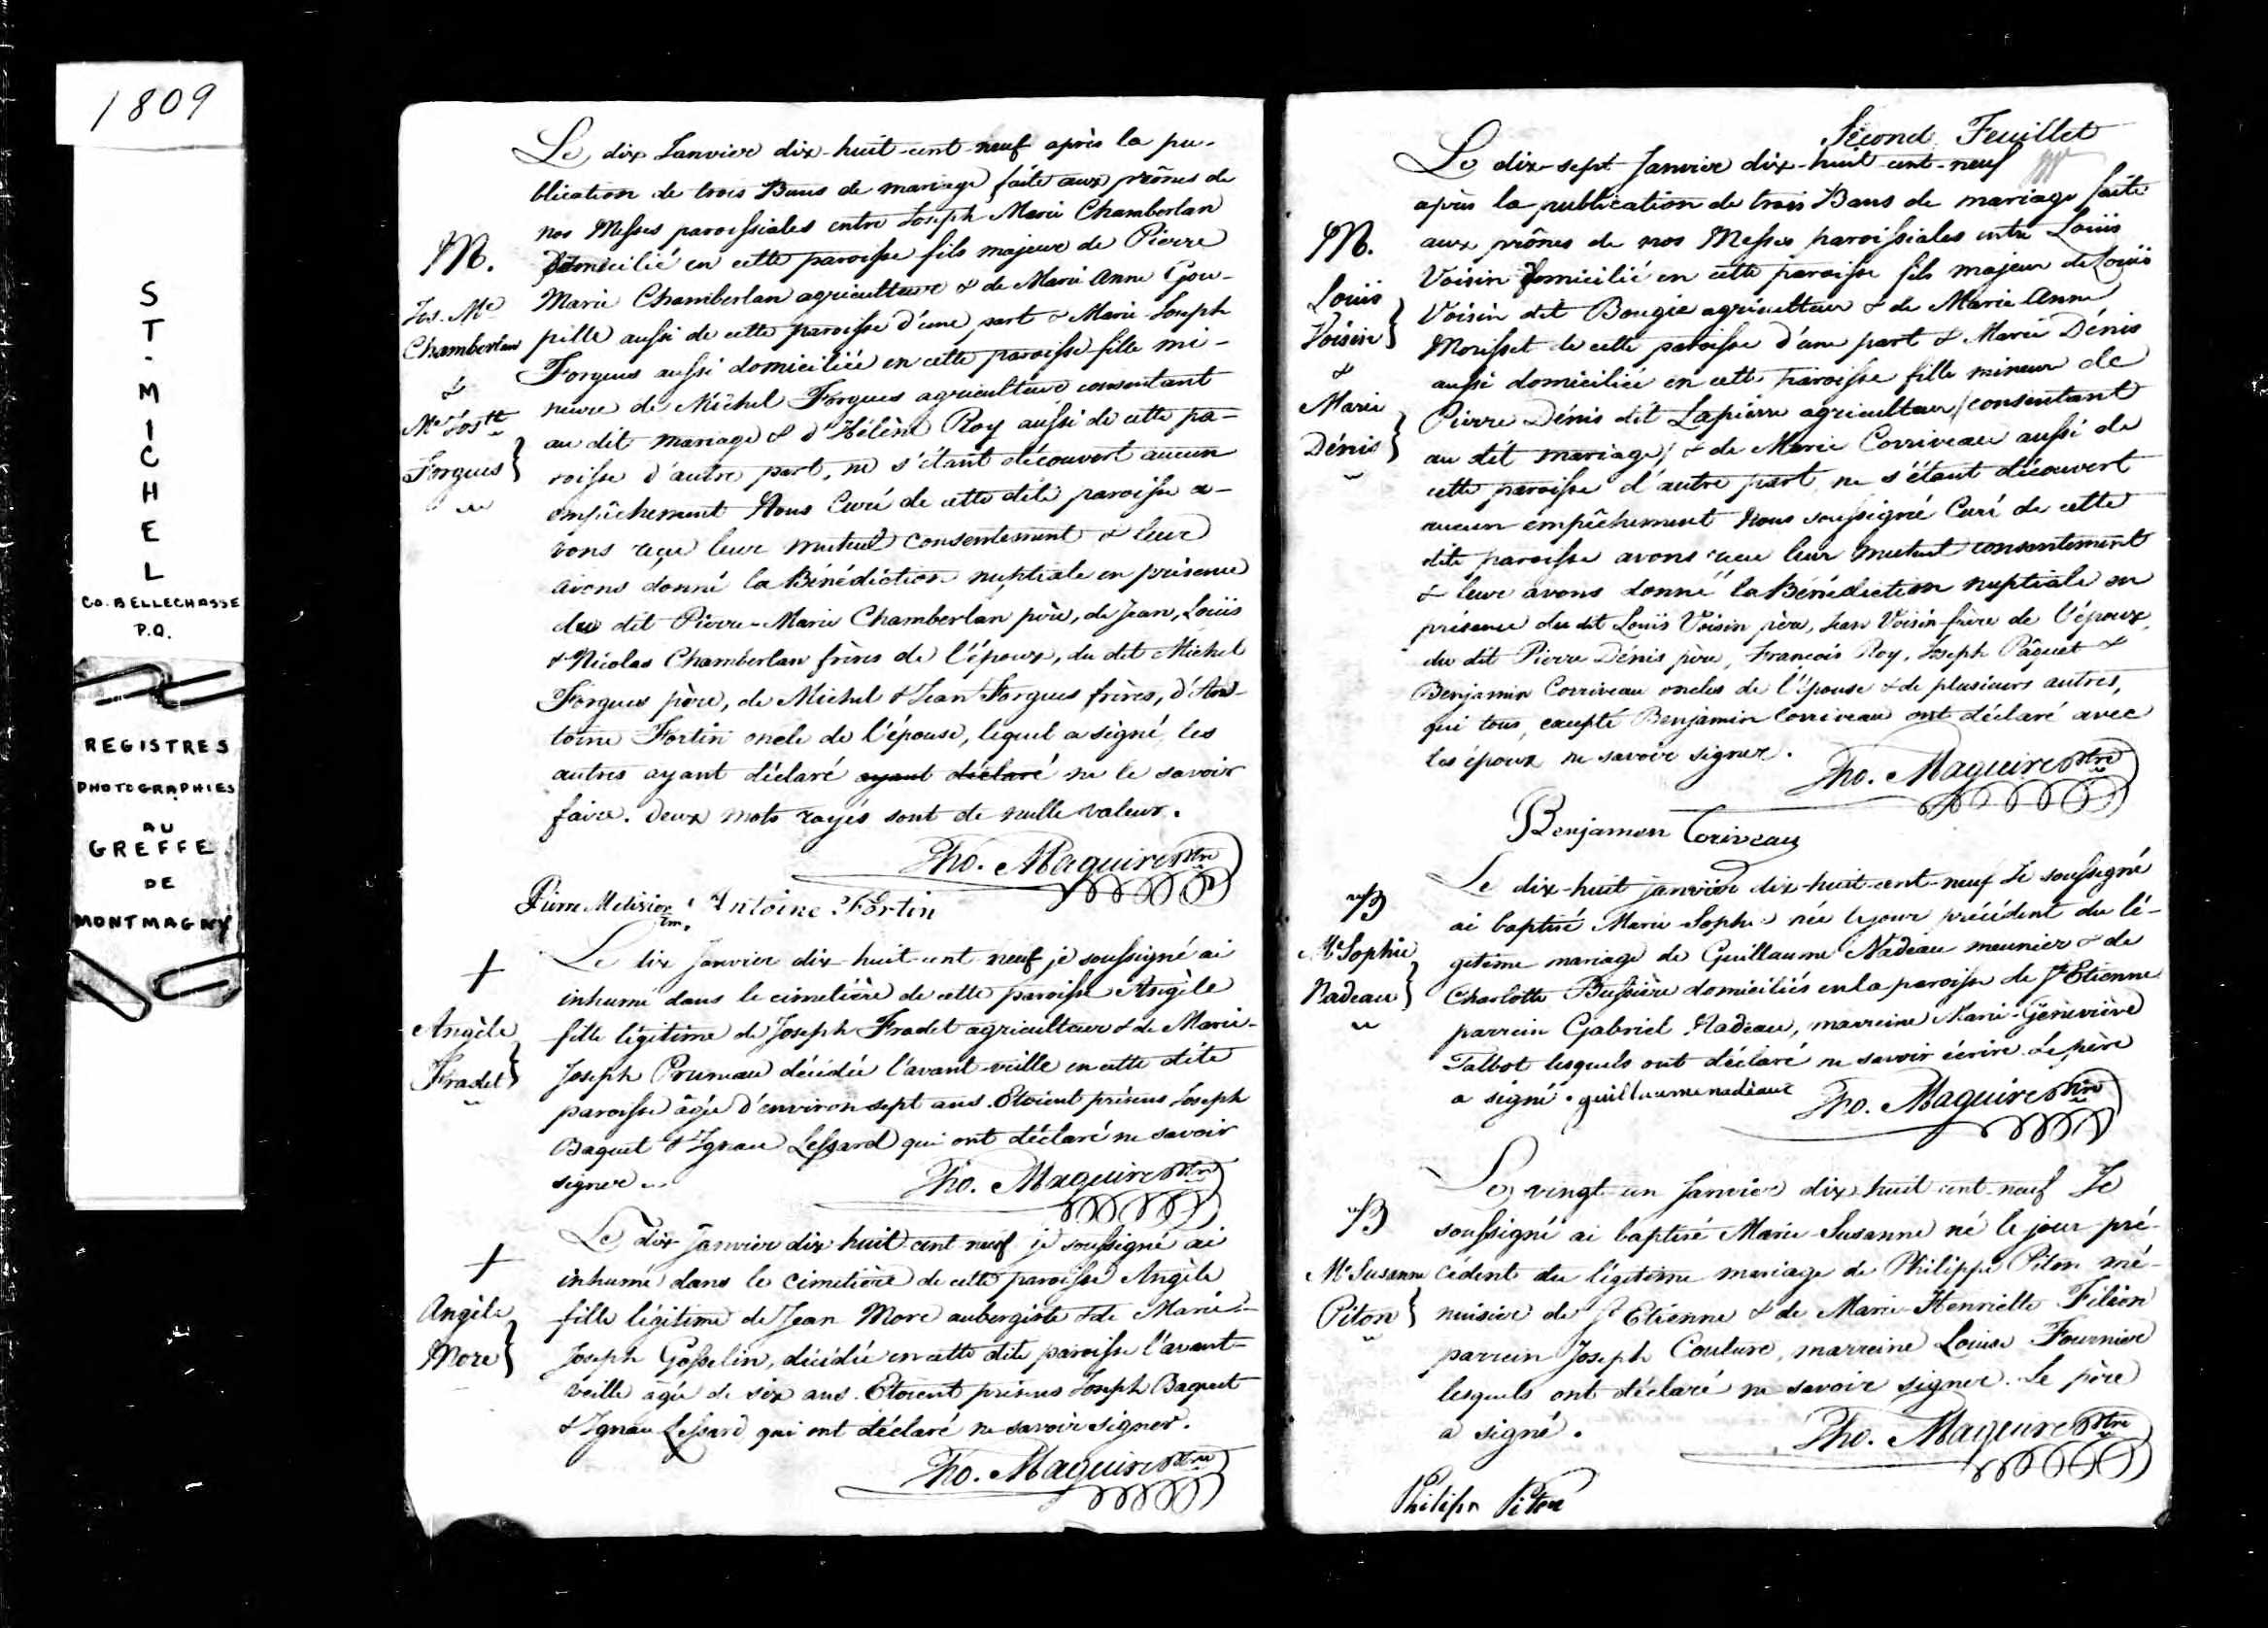 1809
S
T
.
M
I
C
H
E
L
CO. BELLECHASSE
P.Q.
REGISTRES
PHOTOGRAPHIES
AU
GREFFE
DE
MONTMAGNY
Le dix Janvier dix-huit-cent-neuf après la pu-
blication de trois Bans de mariage faite aux prônes de
nos Messes paroissiales entre Joseph Marie Chamberlan
M.
Domicilié en cette paroisse fils majeur de Pierre
Jos. Me
Marie Chamberlan agriculteur & de Marie Anne Gou-
Chamberlan
pille aussi de cette paroisse d'une part & Marie-Joseph
&
Forgues aussi domiciliée en cette paroisse fille mi-
Me Joste
neure de Michel Forgues agriculteur consentant
au dit mariage & d'Hélène Roy aussi de cette pa-
Forgues
roisse d'autre part, ne s'étant découvert aucun
empêchement Nous Curé de cette dite paroisse a-
vons reçu leur mutuel consentement & leur
avons donné la Bénédiction nuptiale en présence
du dit Pierre-Marie Chamberlan père, de Jean, Louis
& Nicolas Chamberlan frères de l'époux, du dit Michel
Forgues père, de Michel & Jean Forgues frères, d'An-
toine Fortin oncle de l'épouse, lequel a signé les
autres ayant déclaré ayant déclaré ne le savoir
faire. Deux mots rayés sont de nulle valeur.
Tho. Maguire Ptre
Pierre Antoine Fortin
Le dix Janvier dix-huit-cent neuf je soussigné ai
+
inhumé dans le cimetière de cette paroisse Angèle
Angèle
fille légitime de Joseph Fradet agriculteur & de Marie-
Fradet
Joseph Pruneau décédée l'avant-veille en cette dite
paroisse âgée d'environ sept ans. Etoient présens Joseph
Baquet & Ignace Lessard qui ont déclaré ne savoir
signer
Tho. Maguire Ptre
Le dix Janvier dix-huit cent neuf je soussigné ai
+
inhumé dans le cimetière de cette paroisse Angèle
Angèle
fille légitime de Jean More aubergiste & de Marie-
More
Joseph Gosselin, décédée en cette dite paroisse l'avant-
veille âgée de six ans. Etoient présens Joseph Baquet
& Ignace Lessard qui ont déclaré ne savoir signer.
Tho. Maguire Ptre
Second Feuillet
Le dix-sept Janvier dix-huit-cent-neuf
après la publication de trois Bans de mariage faite
M.
aux prônes de nos Messes paroissiales entre Louis
Voisin domicilié en cette paroisse fils majeur de Louis
Louis
Voisin dit Bougie agriculteur & de Marie Anne
Voisin
Morisset de cette paroisse d'une part & Marie Dénis
&
aussi domiciliée en cette paroisse fille mineur de
Marie
Pierre Dénis dit Lapierre agriculteur (consentant
Dénis
au dit mariage) & de Marie Corriveau aussi de
cette paroisse d'autre part ne s'étant découvert
aucun empêchement Nous soussigné Curé de cette
dite paroisse avons reçu leur mutuel consentement
& leur avons donné la Bénédiction nuptiale en
présence du dit Louis Voisin père, Jean Voisin frère de l'époux,
du dit Pierre Dénis père, François Roy, Joseph Pâquet &
Benjamin Corriveau oncles de l'épouse & de plusieurs autres,
qui tous, excepté Benjamin Corriveau ont déclaré avec
les époux ne savoir signer.
Tho. Maguire Ptre
Benjamen Coriveau
Le dix-huit janvier dix-huit-cent-neuf Je soussigné
B
ai baptisé Marie-Sophie née le jour précédent du lé-
Me Sophie
gitime mariage de Guillaume Nadeau meunier & de
Nadeau
Charlotte Bussière domiciliés en la paroisse de St Etienne
parrein Gabriel Nadeau, marreine Marie-Géneviève
Talbot lesquels ont déclaré ne savoir écrire. Le père
a signé. guillaume nadeaux
Tho. Maguire Ptre
Le vingt-un Janvier dix-huit-cent-neuf Je
B
soussigné ai baptisé Marie-Susanne né le jour pré-
Me Susanne
cédent du légitime mariage de Philippe Piton mé-
Piton
nuisier de St Etienne & de Marie-Henriette Filion
parrein Joseph Couture, marreine Louise Fournier
lesquels ont déclaré ne savoir signer. Le père
a signé.
Tho. Maguire Ptre
Philipe Piton